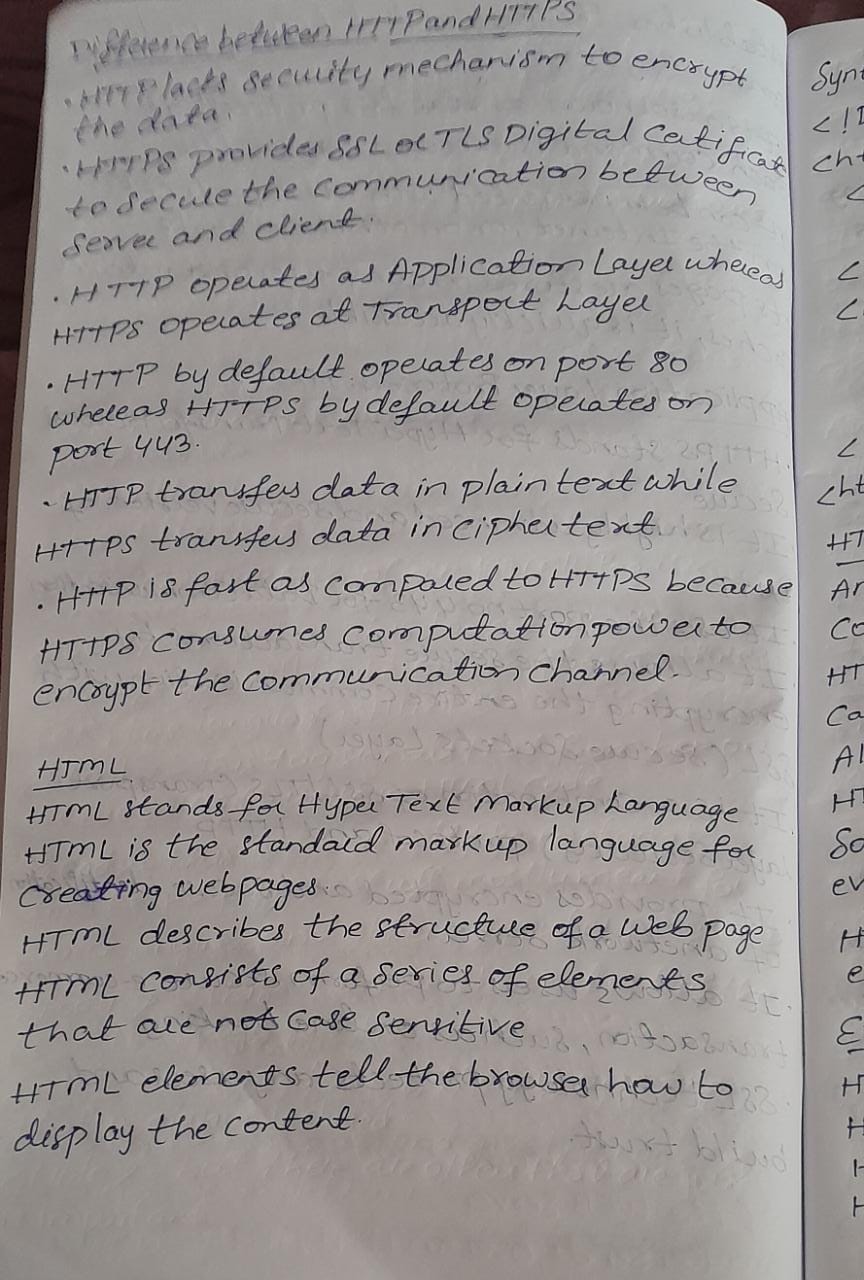 Difference between HTTP and HTTPS
. HTTP lacks security mechanism to encrypt
the data.
. HTTPS provides SSL or TLS Digital Certificate
to secure the communication between
Server and client.
. HTTP operates as Application Layer whereas
HTTPS operates at Transport Layer
. HTTP by default operates on port 80
whereas HTTPS by default operates on
port 443.
. HTTP transfers data in plain text while
HTTPS transfers data in cipher text.
. HTTP is fast as compared to HTTPS because
HTTPS consumes computation power to
encrypt the communication channel.
HTML
HTML stands for Hyper Text Markup Language
HTML is the standard markup language for
creating webpages.
HTML describes the structure of a Web page
HTML consists of a series of elements
that are not case sensitive
HTML elements tell the browser how to
display the content.